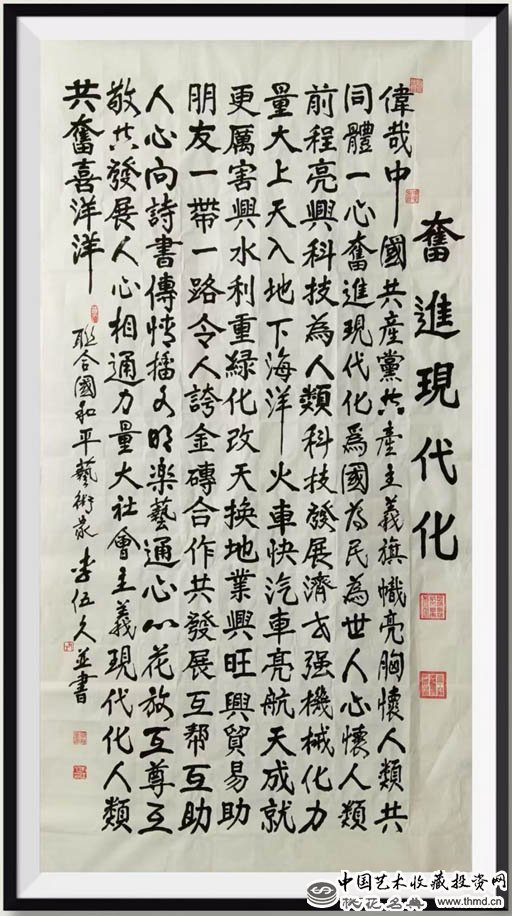 奮進現代化
偉哉中國共產黨共產主義旗幟亮胸懷人類共
同體一心奮進現代化爲國為民為世人心懷人類
前程亮興科技為人類科技發展濟世强機械化力
量大上天入地下海洋火車快汽車亮航天成就
更厲害興水利重綠化改天換地業興旺興貿易助
朋友一帶一路令人誇金磚合作共發展互幫互助
人心向詩書傳情播文明樂藝通心心花放互尊互
敬共發展人心相通力量大社會主義現代化人類
共奮喜洋洋
聯合國和平藝術家李伍久並書
中国艺术收藏投资网
桃花名典
www.thmd.cn